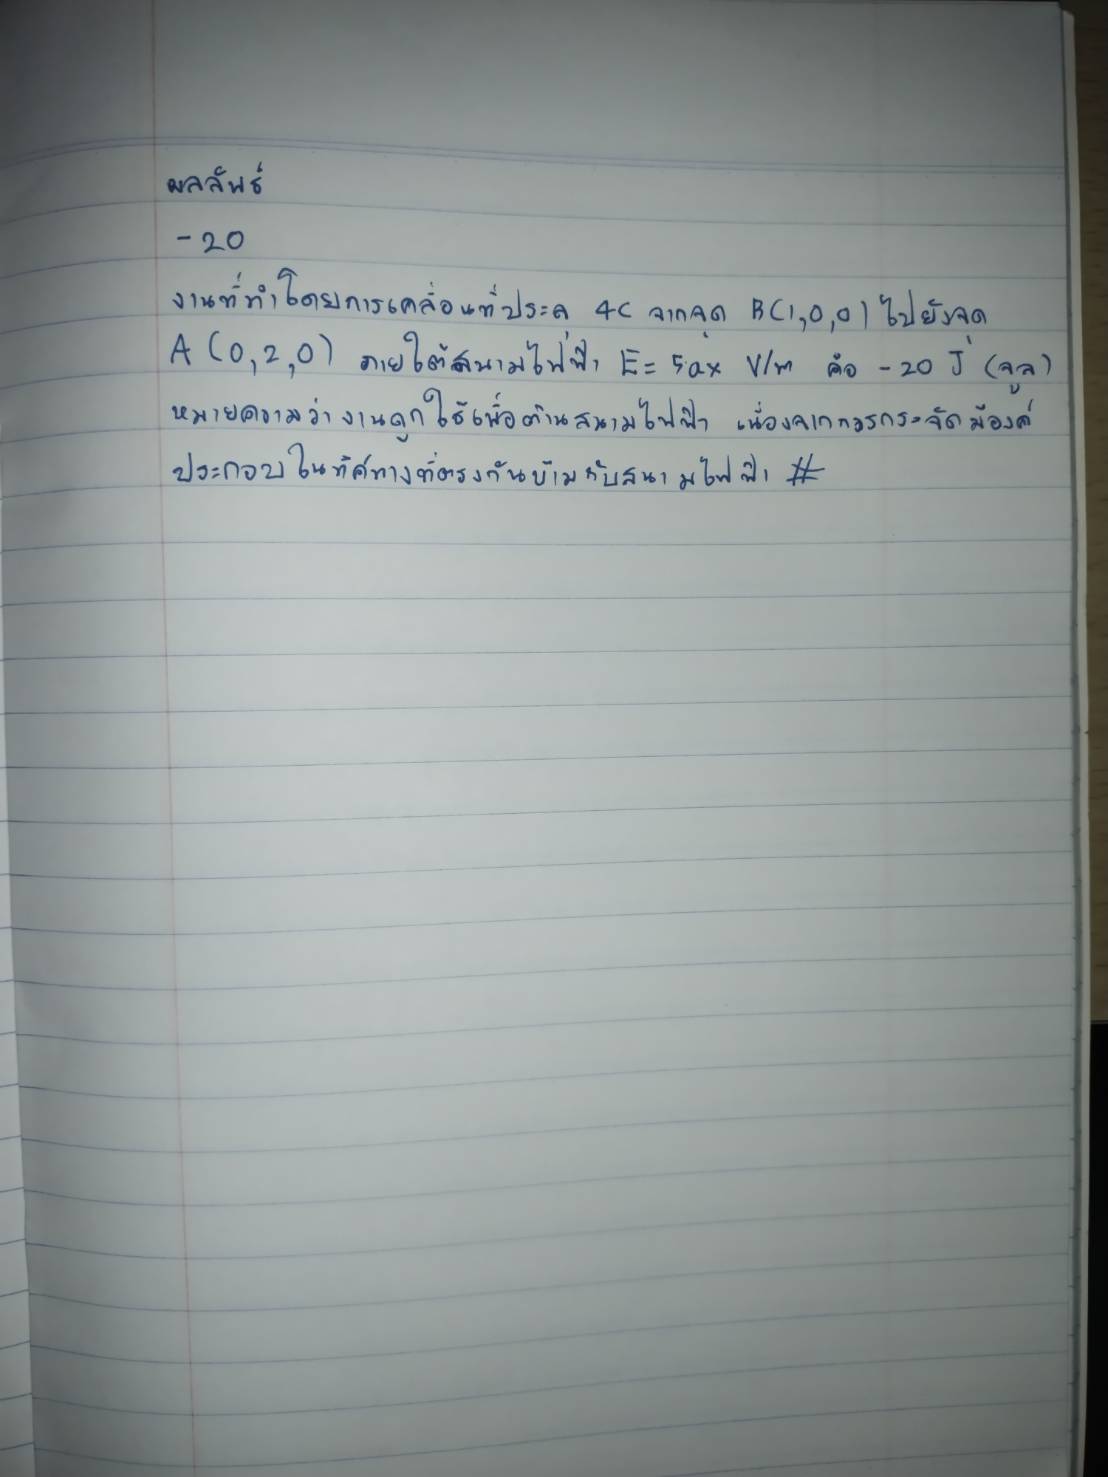 ผลลัพธ์
-20
งานที่ทำโดยการเคลื่อนที่ประจุ 4C จากจุด B(1,0,0) ไปยังจุด
A (0,2,0) ภายใต้สนามไฟฟ้า E = 5ax V/m คือ -20 J (จูล)
หมายความว่างานถูกใช้เพื่อต้านสนามไฟฟ้า เนื่องจากการกระจัดมีองค์
ประกอบในทิศทางที่ตรงกันข้ามกับสนามไฟฟ้า #